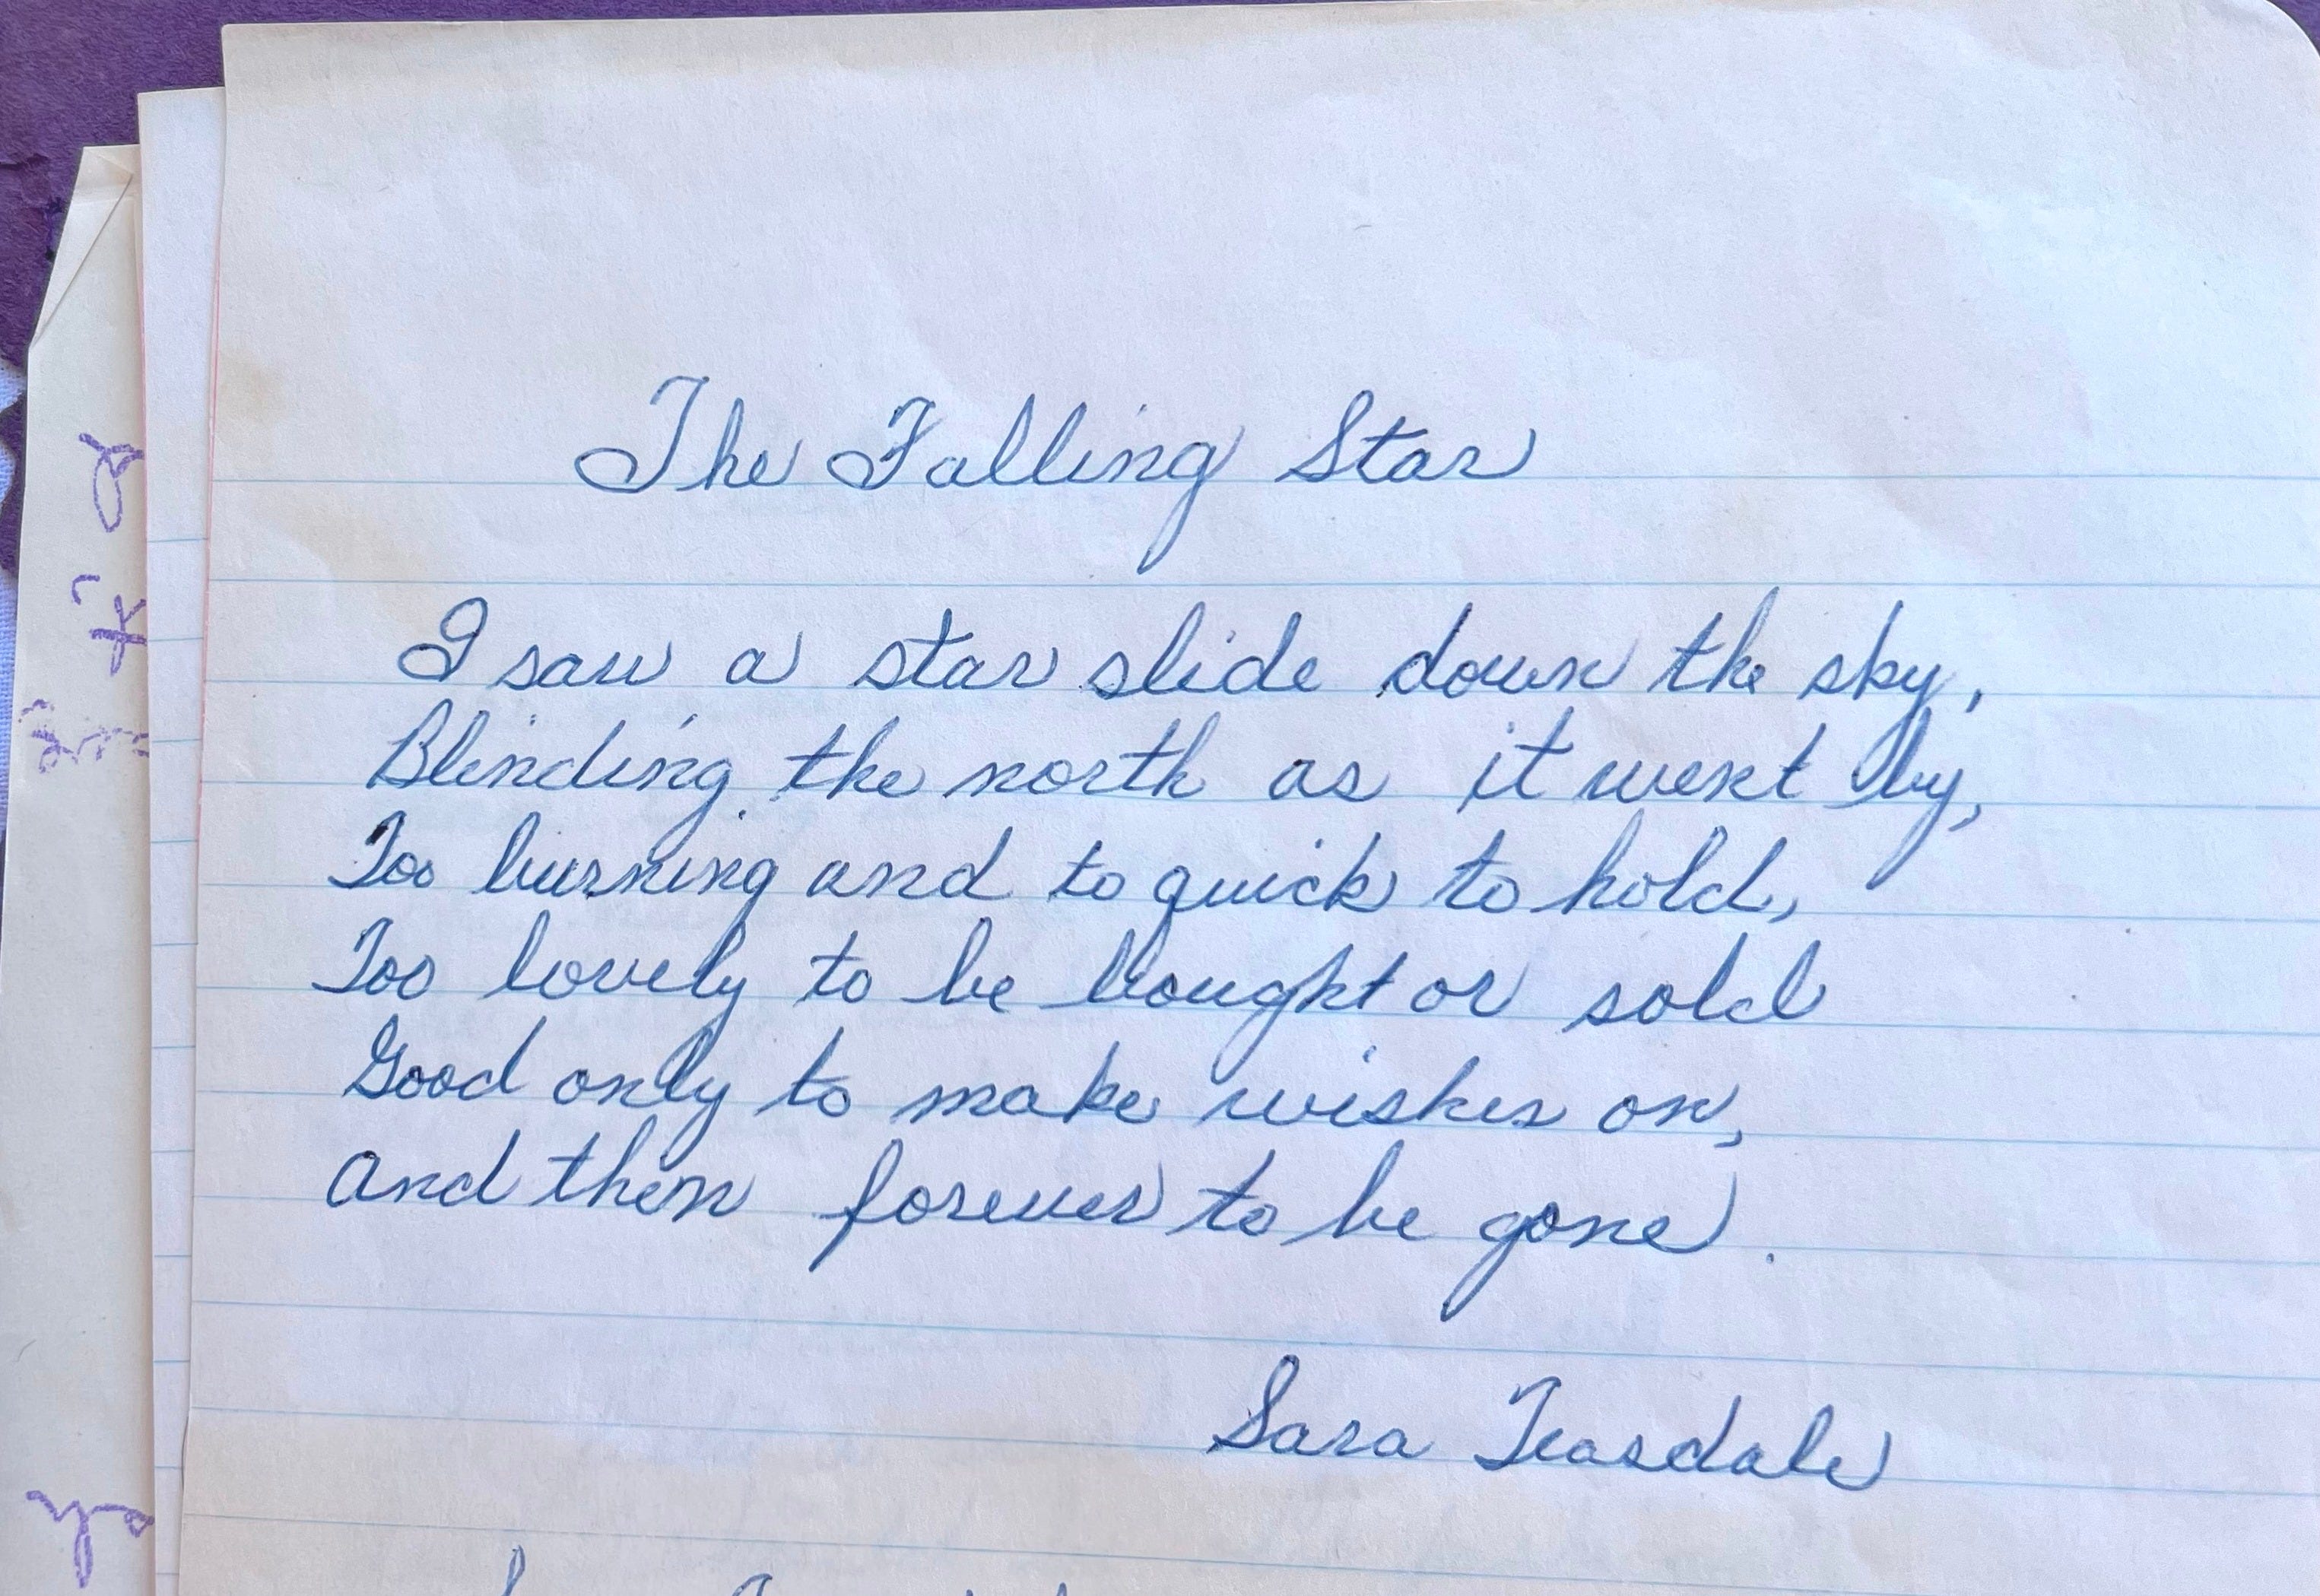 The Falling Star
I saw a star slide down the sky,
Blinding the north as it went by,
Too burning and to quick to hold,
Too lovely to be bought or sold
Good only to make wishes on,
And then forever to be gone.
Sara Teasdale